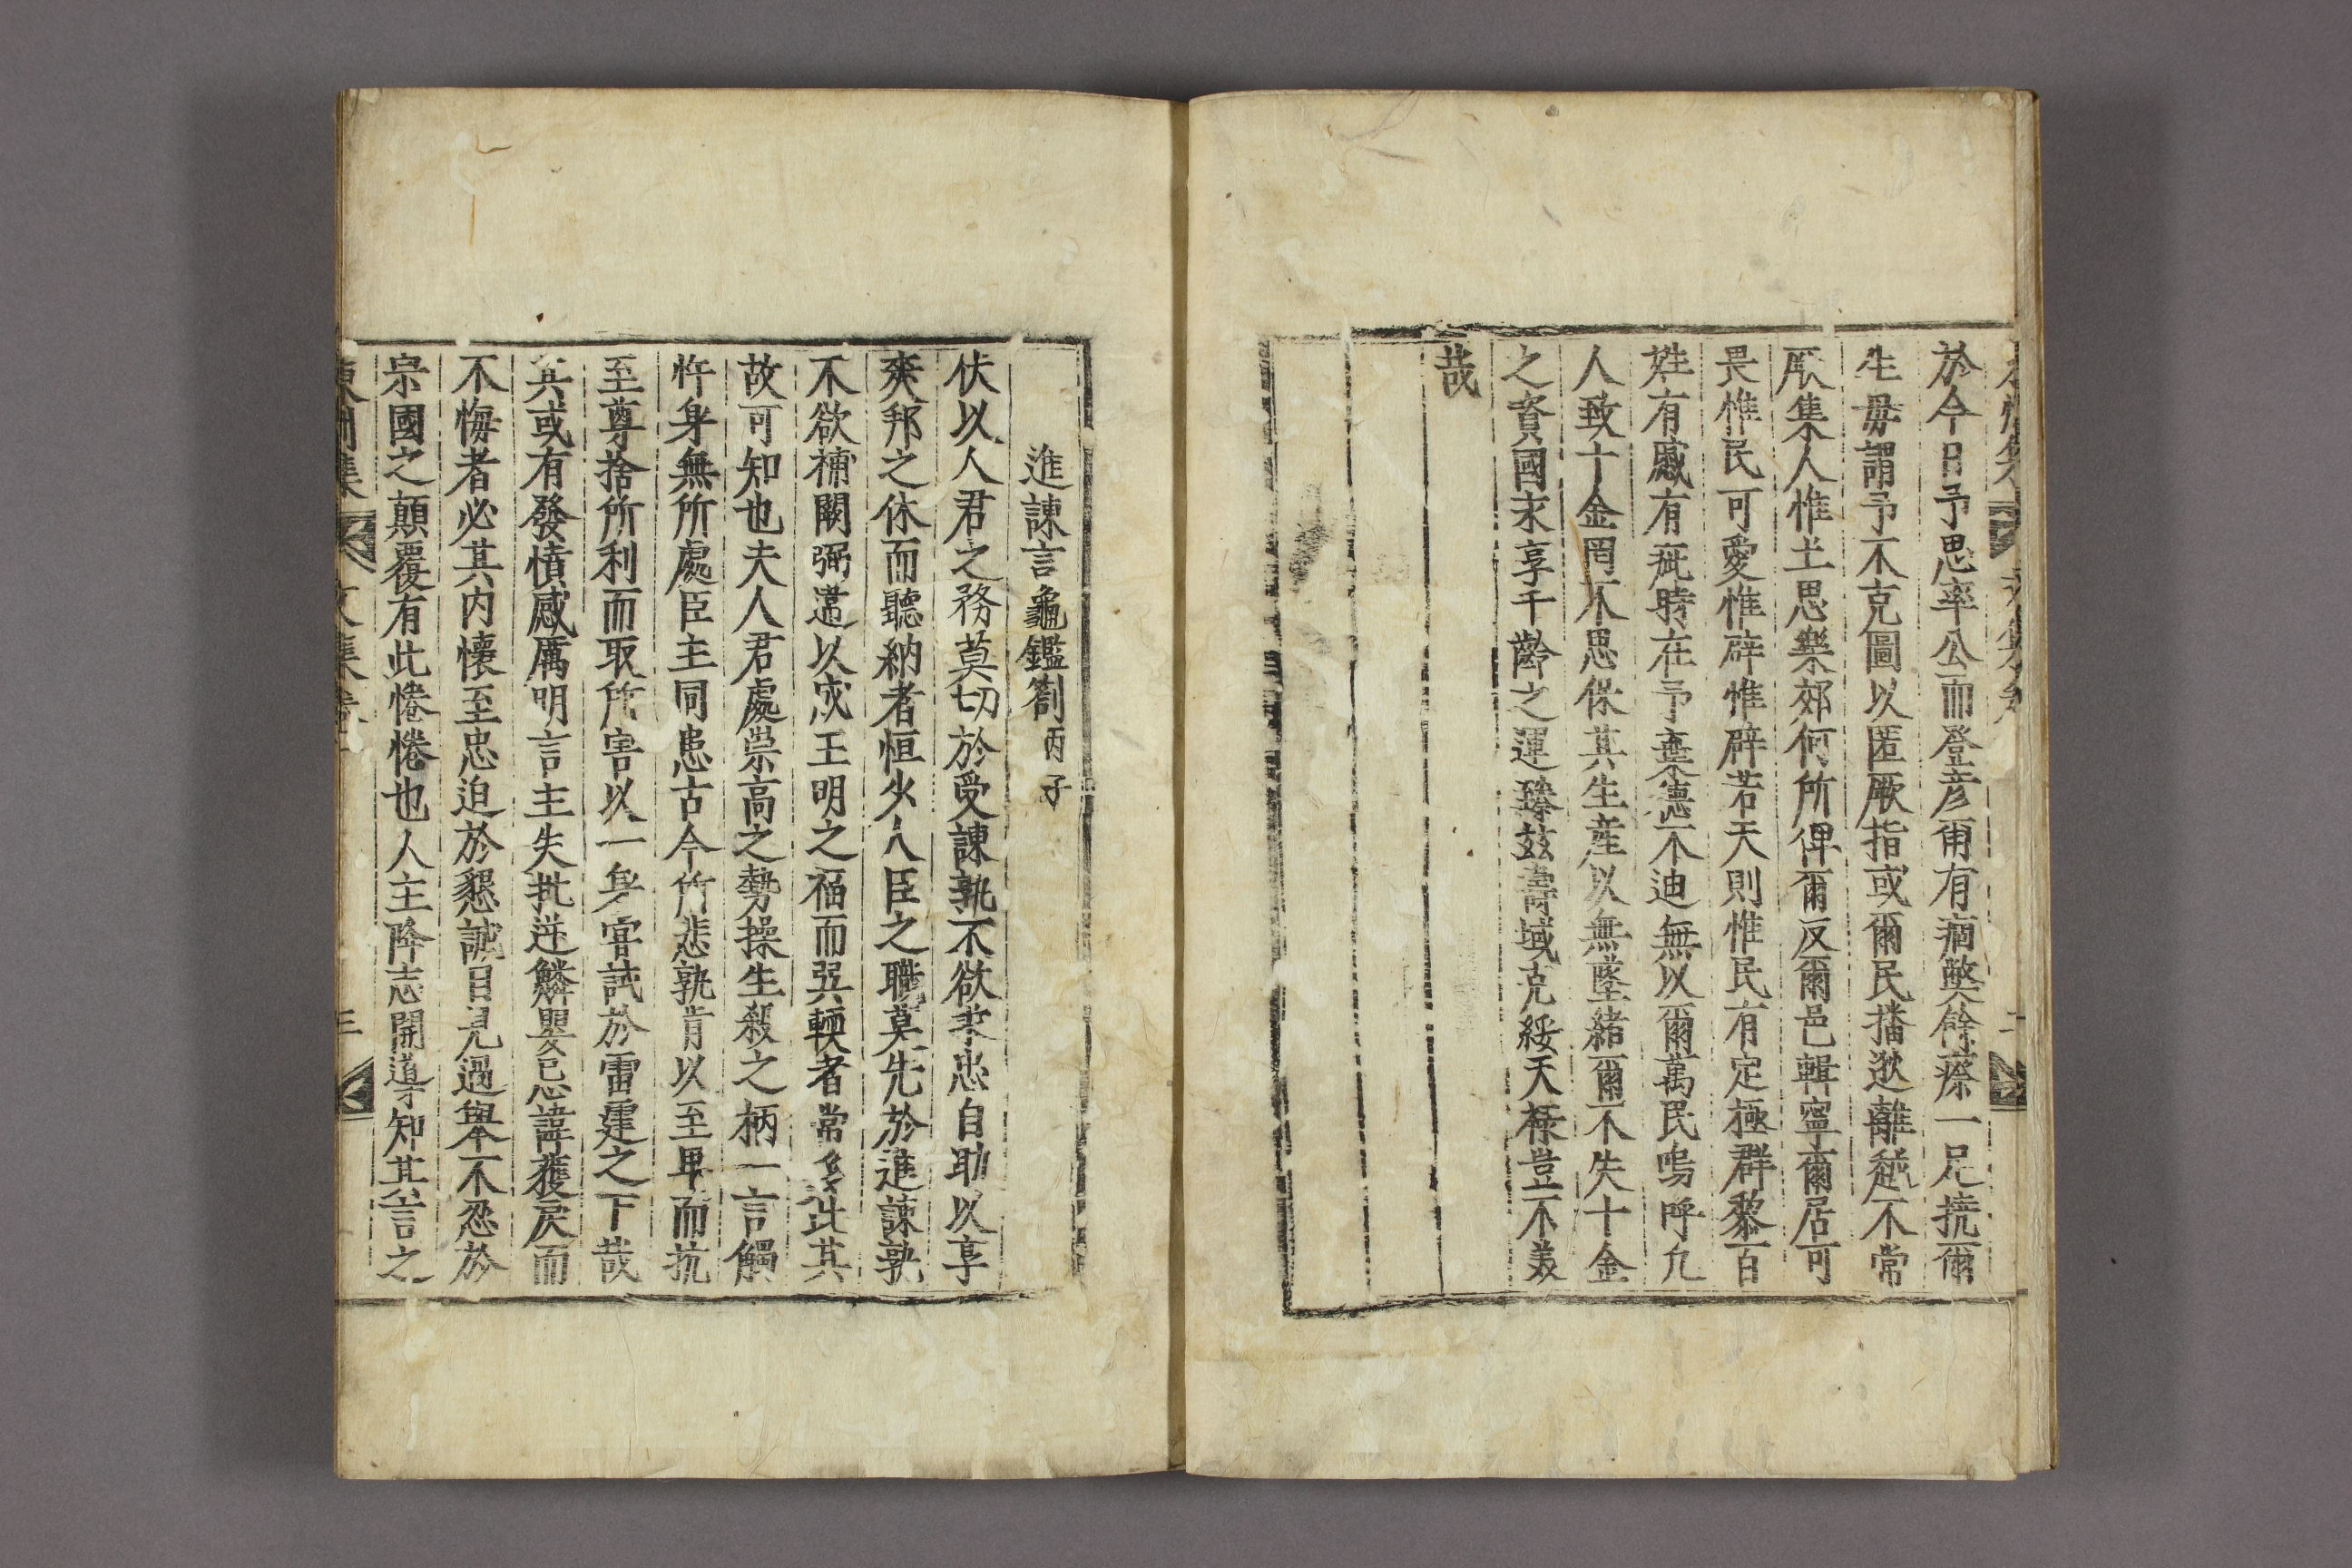 於今日予思率公而登彦爾有痼獘餘瘵一足撓爾
生毋謂予不克圖以匿厥指或爾民播逖離挻不常
厥集人惟土思樂郊何所俾爾反爾邑輯寧爾居可
畏惟民可愛惟辟惟辟若天則惟民有定極群黎百
姓有慼有疵時在予棄德不迪無以爾萬民嗚呼凡
人致十金罔不思保其生産以無墜緒爾不失十金
之資國末享千齡之運臻玆壽域克綏天祿豈不美
哉
進諫言龜鑑劄 丙子
伏以人君之務莫切於受諫孰不欲求忠自助以享
爽邦之休而聽納者恒少人臣之職莫先於進諫孰
不欲補闕弼違以宓王明之福而巽輭者常多此其
故可知也夫人君處崇高之勢操生殺之柄一言觸
忤身無所處臣主同患古今所悲孰肯以至卑而抗
至尊捨所利而取所害以一身嘗試於雷霆之下哉
其或有發憤感厲明言主失批逆鱗嬰忌諱獲戾而
不悔者必其内懷至忠迫於懇誠目見過擧不忍於
宗國之顛覆有此惓惓也人主降志開導知其言之
文集卷
三